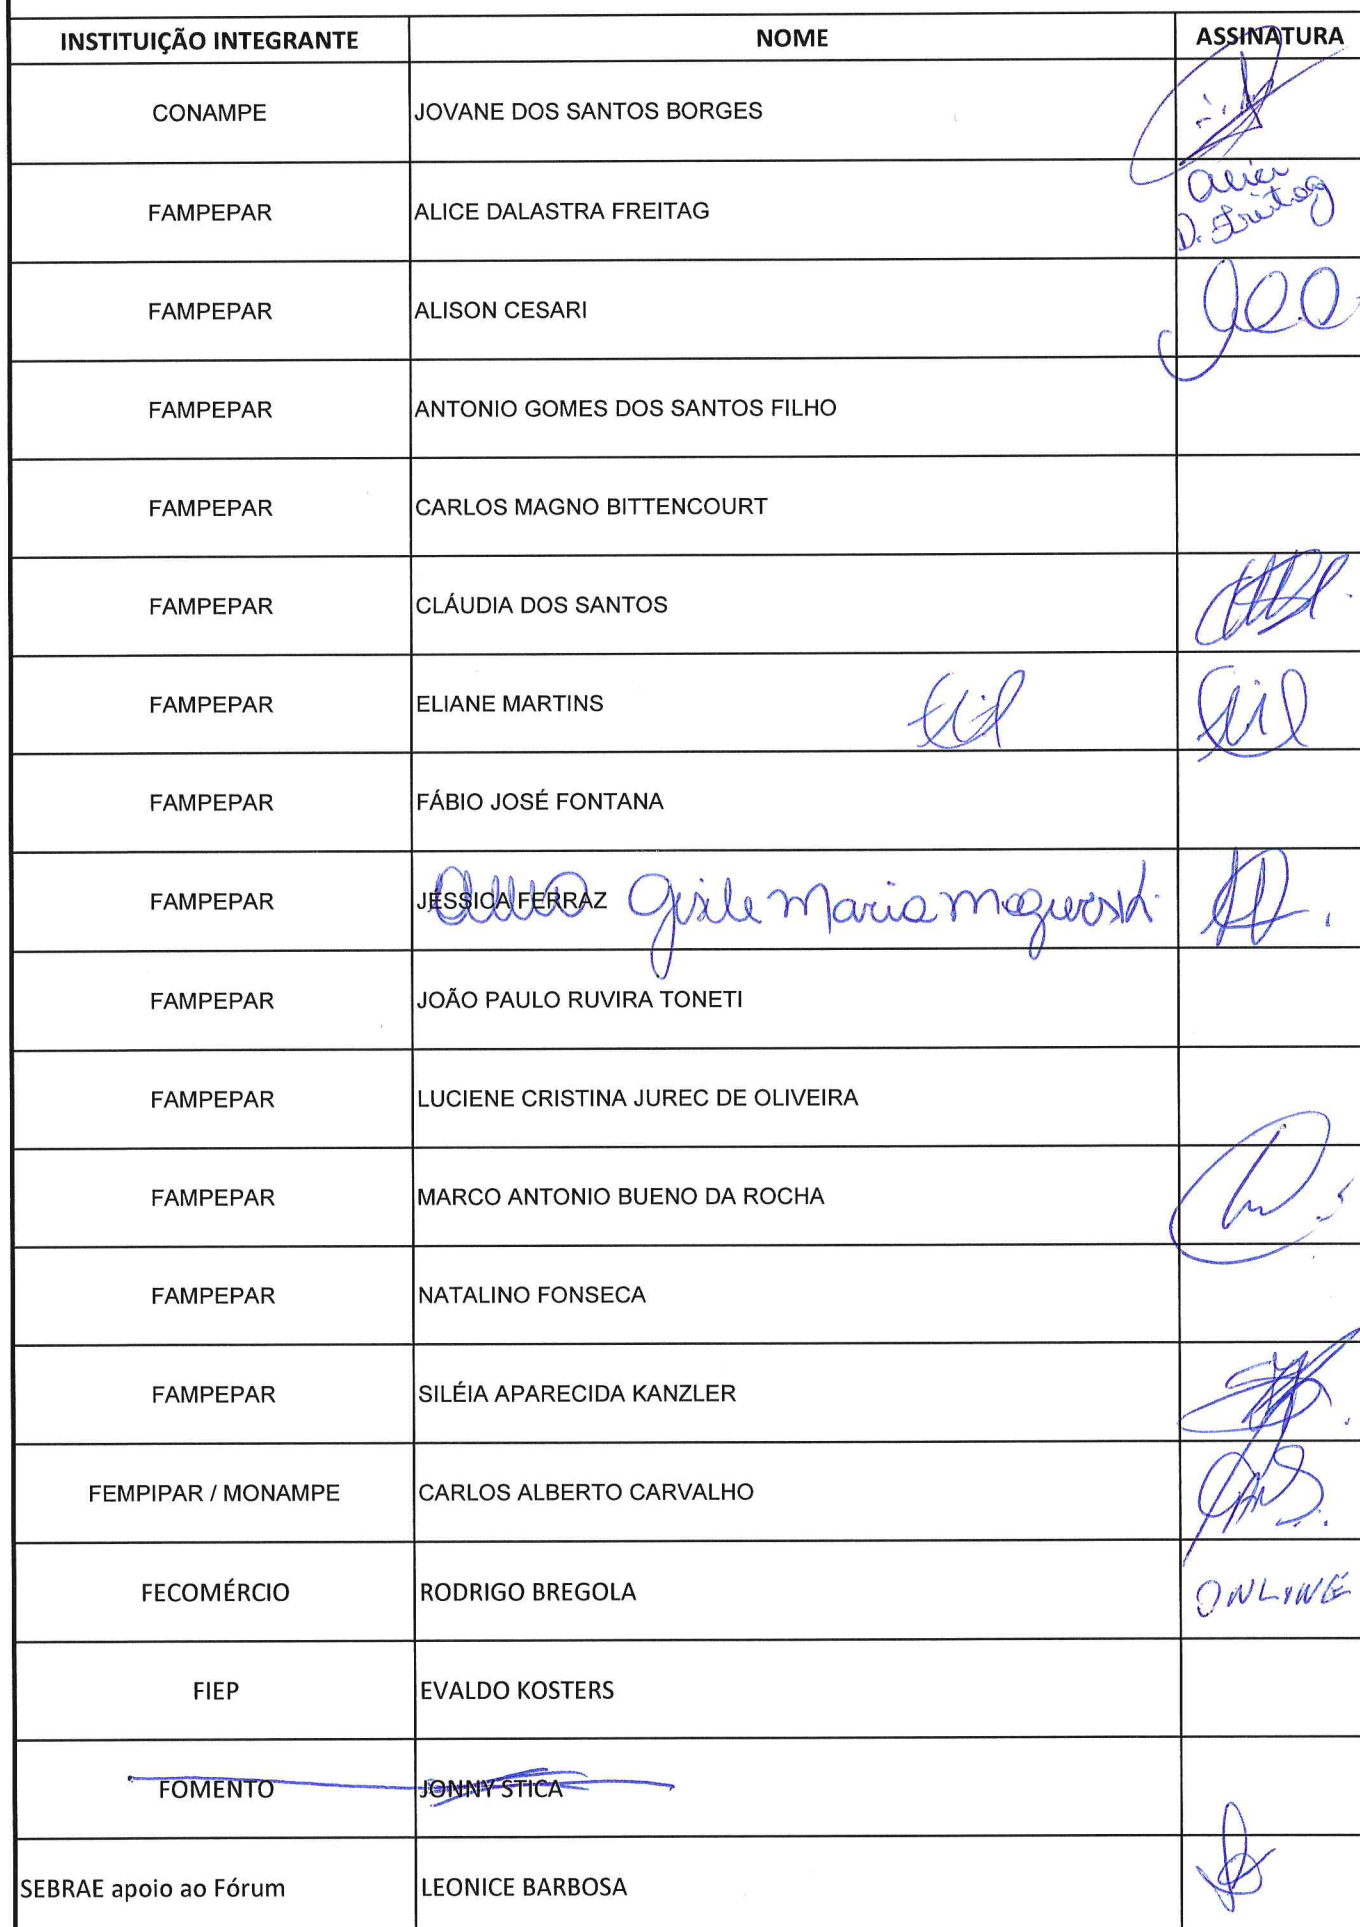 INSTITUIÇÃO INTEGRANTE NOME ASSINATURA
CONAMPE JOVANE DOS SANTOS BORGES
FAMPEPAR ALICE DALASTRA FREITAG Alice
D. Freitag
FAMPEPAR ALISON CESARI
FAMPEPAR ANTONIO GOMES DOS SANTOS FILHO
FAMPEPAR CARLOS MAGNO BITTENCOURT
FAMPEPAR CLÁUDIA DOS SANTOS
FAMPEPAR ELIANE MARTINS
FAMPEPAR FÁBIO JOSÉ FONTANA
FAMPEPAR JÉSSICA FERRAZ Gisele Maria
FAMPEPAR JOÃO PAULO RUVIRA TONETI
FAMPEPAR LUCIENE CRISTINA JUREC DE OLIVEIRA
FAMPEPAR MARCO ANTONIO BUENO DA ROCHA
FAMPEPAR NATALINO FONSECA
FAMPEPAR SILÉIA APARECIDA KANZLER
FEMPIPAR / MONAMPE CARLOS ALBERTO CARVALHO
FECOMÉRCIO RODRIGO BREGOLA ONLINE
FIEP EVALDO KOSTERS
FOMENTO JONNY STICA
SEBRAE apoio ao Fórum LEONICE BARBOSA